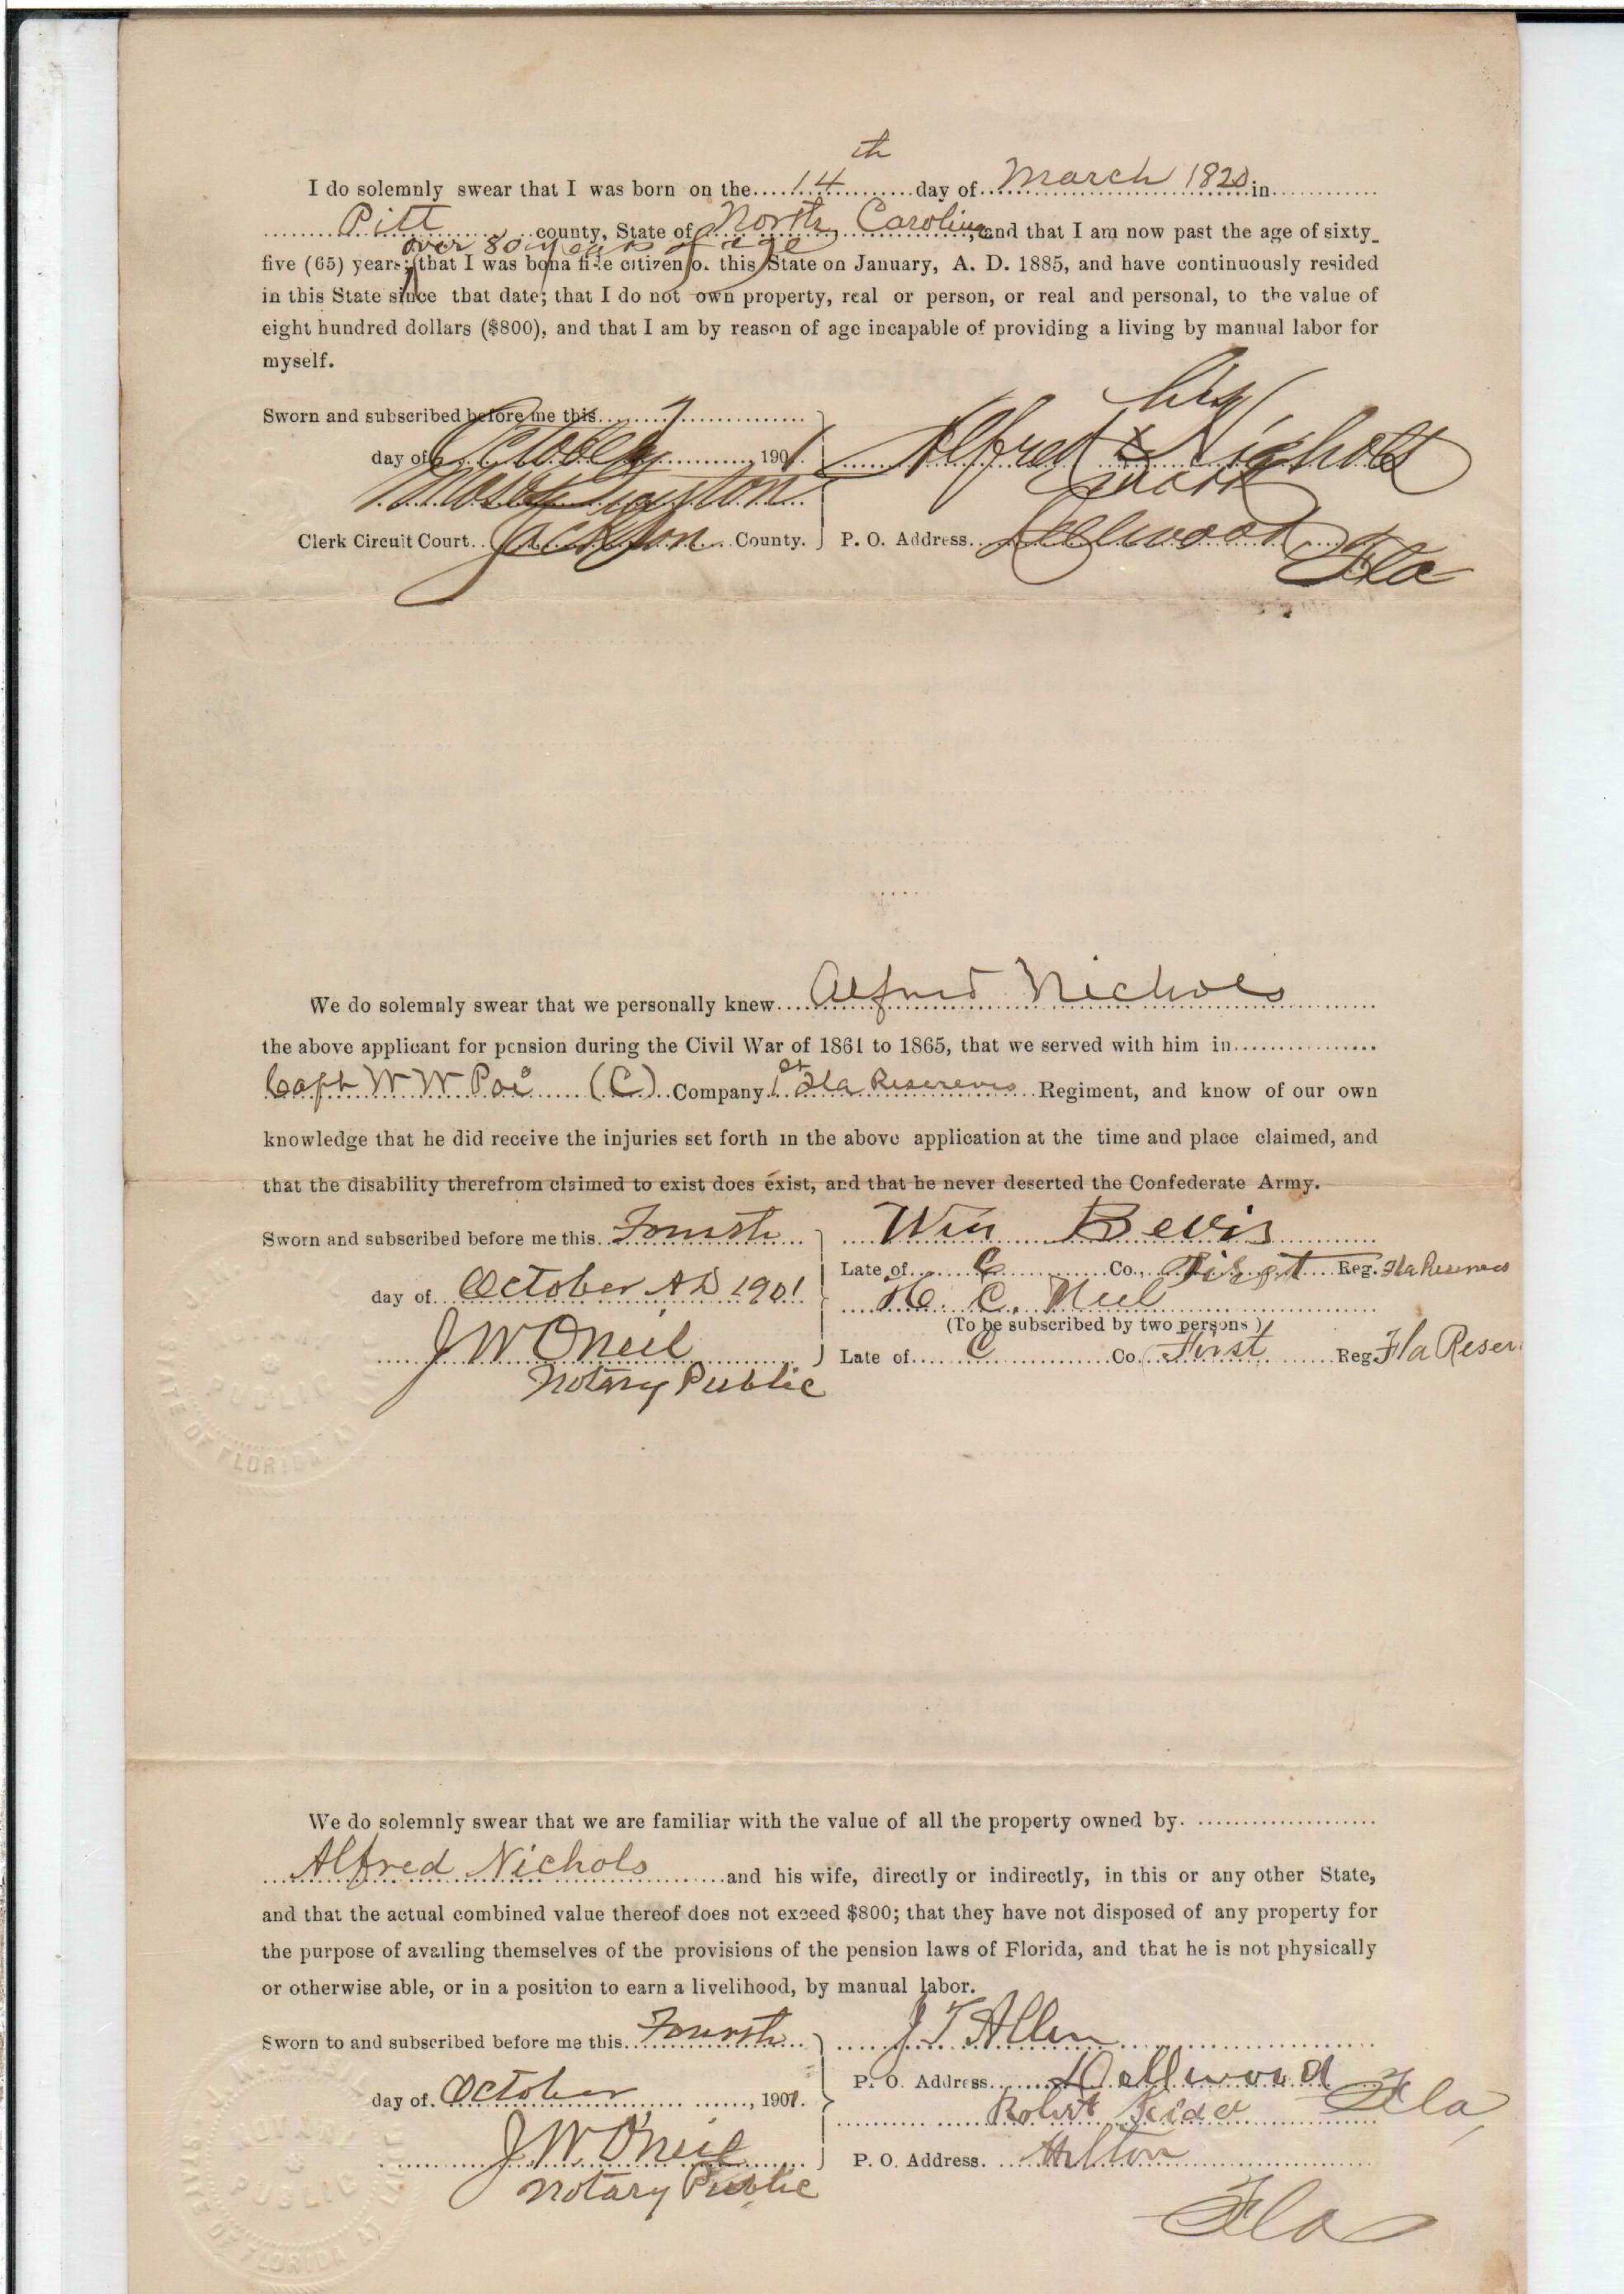 th
I do solemnly swear that I was born on the 14 day of March 1820 in
Pitt county, State of North Carolina, and that I am now past the age of sixty-
over 80 years of age
five (65) years; that I was bona fide citizen of this State on January, A. D. 1885, and have continuously resided
in this State since that date; that I do not own property, real or person, or real and personal, to the value of
eight hundred dollars ($800), and that I am by reason of age incapable of providing a living by manual labor for
myself.
his
Sworn and subscribed before me this 7
day of October 1901 Alfred X Nichols
mark
Clerk Circuit Court Jackson County. P. O. Address Dellwood
Fla
We do solemnly swear that we personally knew Alfred Nichols
the above applicant for pension during the Civil War of 1861 to 1865, that we served with him in
Capt W W Poe (C) Company 1st Fla Reserves Regiment, and know of our own
knowledge that he did receive the injuries set forth in the above application at the time and place claimed, and
that the disability therefrom claimed to exist does exist, and that he never deserted the Confederate Army.
Sworn and subscribed before me this Fourth Wm Bevis
Late of C Co., First Reg. Fla Reserves
day of October AD 1901 H. C. Neel
(To be subscribed by two persons)
J W ONeil Late of C Co. First Reg. Fla Reser
Notary Public
NOTARY
PUBLIC
STATE OF FLORIDA AT LARGE
We do solemnly swear that we are familiar with the value of all the property owned by
Alfred Nichols and his wife, directly or indirectly, in this or any other State,
and that the actual combined value thereof does not exceed $800; that they have not disposed of any property for
the purpose of availing themselves of the provisions of the pension laws of Florida, and that he is not physically
or otherwise able, or in a position to earn a livelihood, by manual labor.
Sworn to and subscribed before me this Fourth J T Allen
P. O. Address Dellwood Fla
day of October, 1901. Robert
J W O'Neil P. O. Address.
Notary Public
Fla
NOTARY
PUBLIC
STATE OF FLORIDA AT LARGE